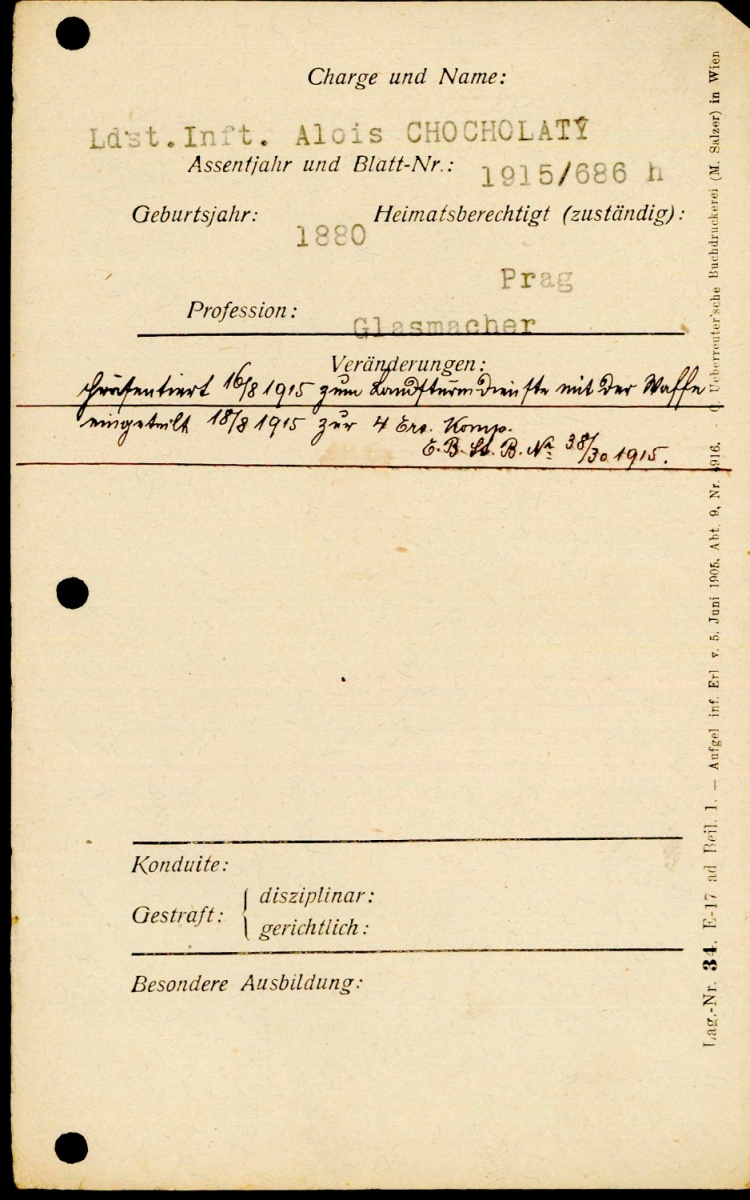 Charge und Name:
Ldst.Inft. Alois CHOCHOLATÝ
Assentjahr und Blatt-Nr.: 1915/686 h
Geburtsjahr: 1880 Heimatsberechtigt (zuständig):
Prag
Profession: Glasmacher
Veränderungen:
Präsentiert 16/8 1915 zum Landsturmdienste mit der Waffe
eingeteilt 18/8 1915 zur 4 Ers. Komp.
E. B. St. B. No 38/30 1915.
Konduite:
Gestraft: { disziplinar:
gerichtlich:
Besondere Ausbildung:
Lag.-Nr. 34. E-17 ad Beil. 1. — Aufgel inf. Erl v. 5. Juni 1905. Abt. 9, Nr. 4916. - C. Ueberreuter'sche Buchdruckerei (M. Salzer) in Wien